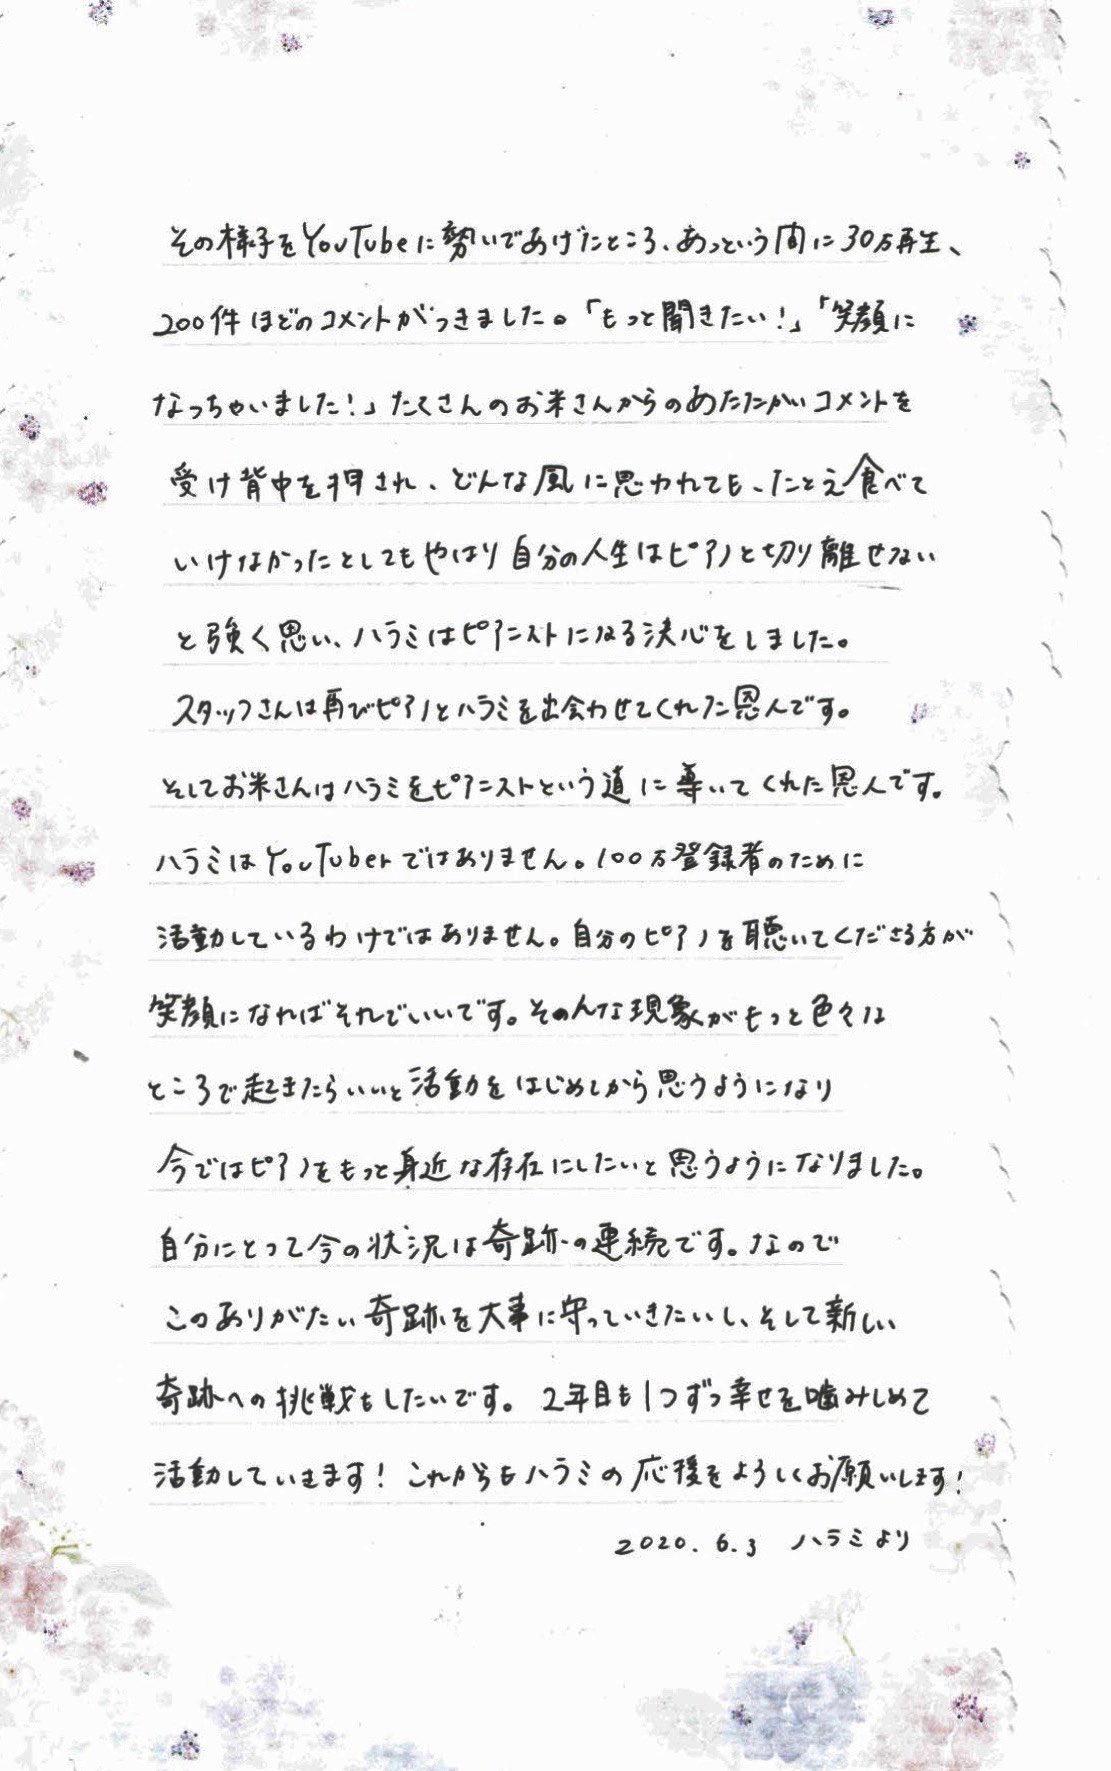 その様子をYouTubeに勢いであげたところ、あっという間に30万再生、
200件ほどのコメントがつきました。「もっと聞きたい!」「笑顔に
なっちゃいました!」たくさんのお米さんからのあたたかいコメントを
受け背中を押され、どんな風に思われても、たとえ食べて
いけなかったとしてもやはり自分の人生はピアノと切り離せない
と強く思い、ハラミはピアニストになる決心をしました。
スタッフさんは再びピアノとハラミを出会わせてくれた恩人です。
そしてお米さんはハラミをピアニストという道に導いてくれた恩人です。
ハラミはYouTuberではありません。100万登録者のために
活動しているわけではありません。自分のピアノを聴いてくださる方が
笑顔になればそれでいいです。そのんな現象がもっと色々な
ところで起きたらいいと活動をはじめてから思うようになり
今ではピアノをもっと身近な存在にしたいと思うようになりました。
自分にとって今の状況は奇跡の連続です。なので
このありがたい奇跡を大事に守っていきたいし、そして新しい
奇跡への挑戦もしたいです。2年目も1つずつ幸せを噛みしめて
活動していきます!これからもハラミの応援をよろしくお願いします!
2020.6.3 ハラミより